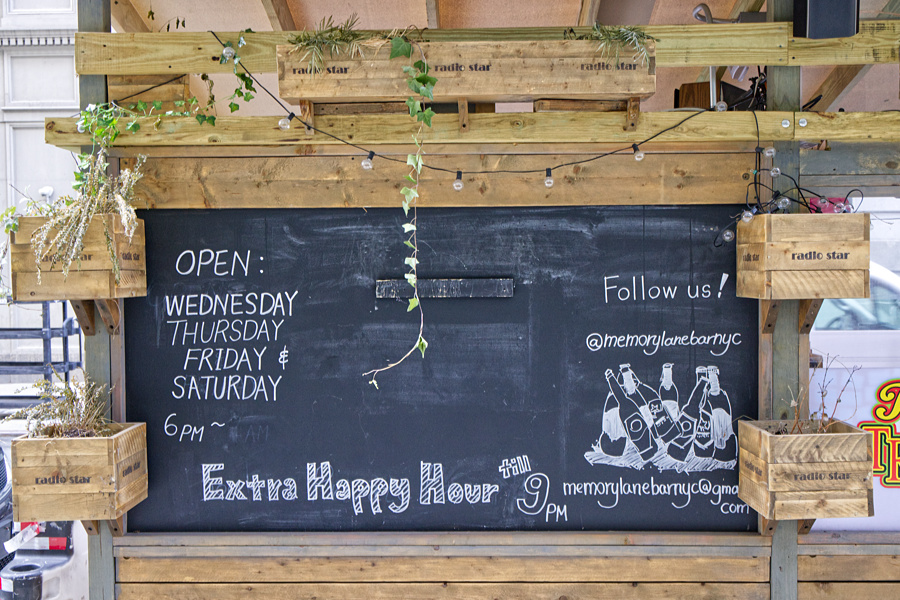 radio star
radio star
radio star
OPEN:
WEDNESDAY
THURSDAY
FRIDAY &
SATURDAY
6PM~
Extra Happy Hour till 9PM
Follow us!
@memorylanebarnyc
memorylanebarnyc@gma
com
radio star
radio star
radio star
radio star